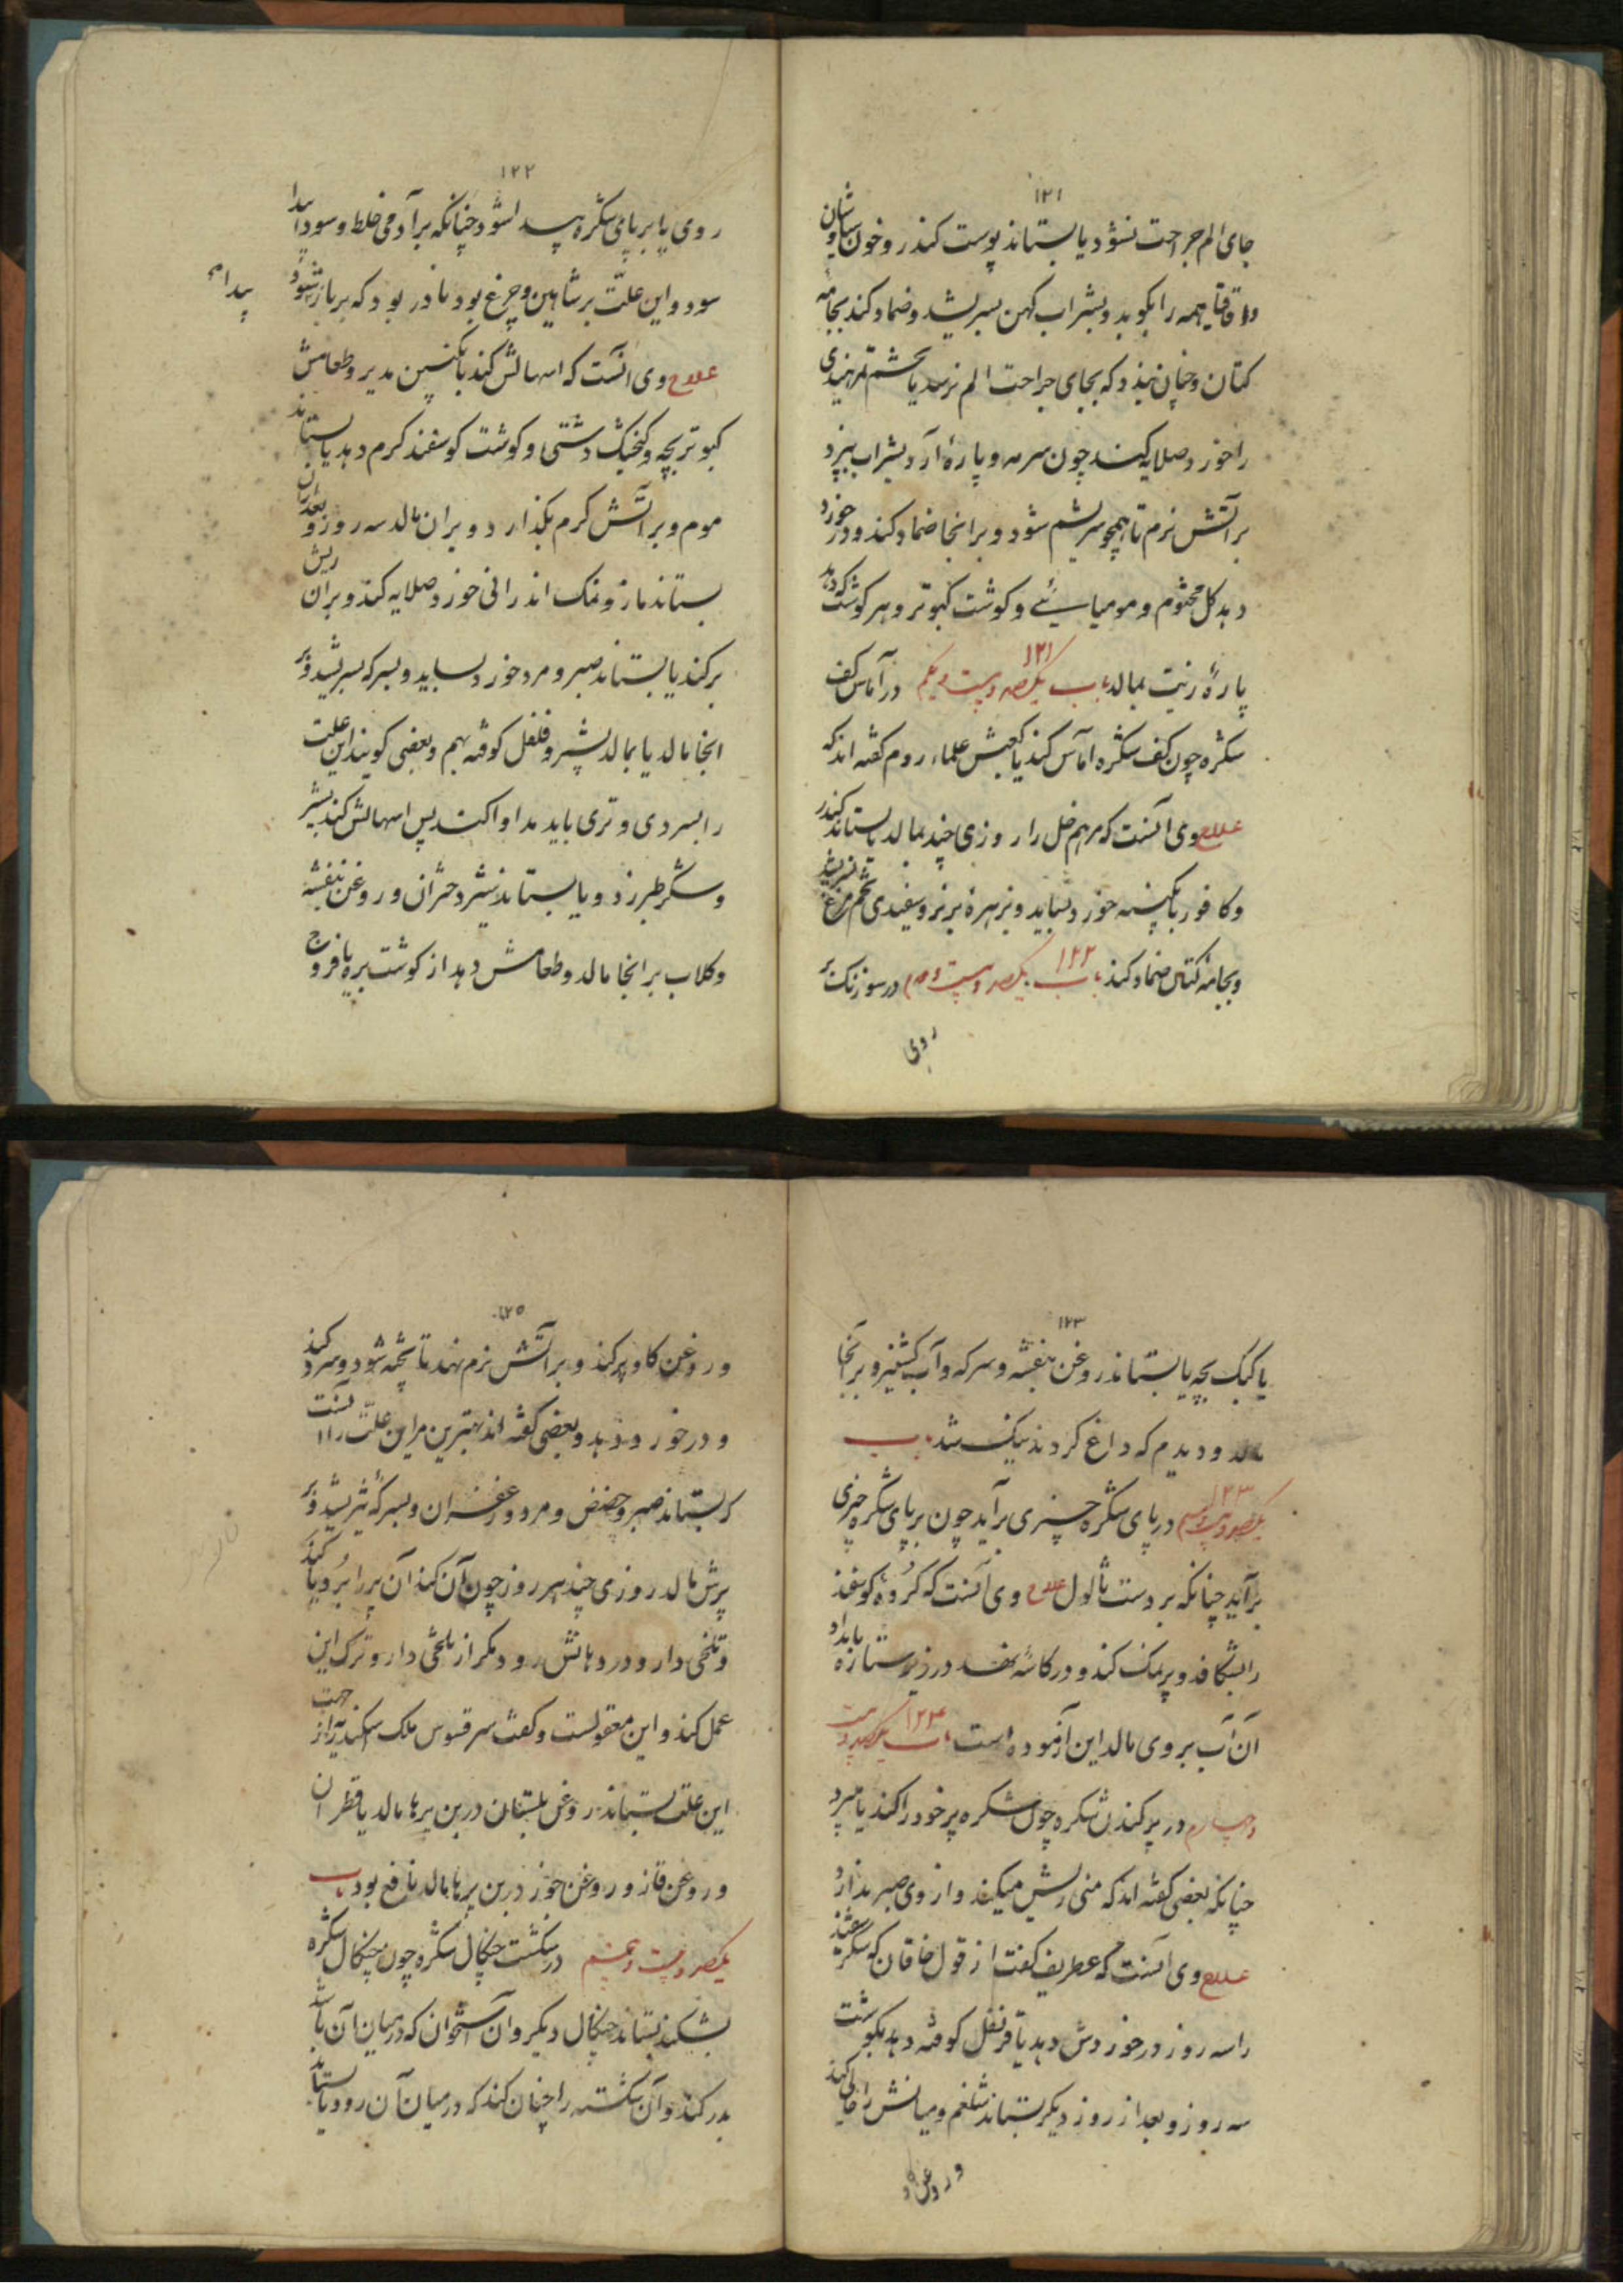 ١٢١
جای الم جراحت نشود یا بستاند پوست کندر و خون سیاوشان
و اقاقیا همه را بکوبد و بشراب کهن بسریشد و ضماد کند بجامه
کتان و چنان نهد که بجای جراحت الم نرسد یا تخم تمر هندی
را خورد صلایه کند چون سرمه و پارهٔ آرد بشراب بپزد
بر آتش نرم تا همچو سریشم شود و بر انجا ضماد کند و در خورد
دهد کل مختوم و مومیائی و کوشت کبوتر و هر کوشت که دهد
پارهٔ زیت بمالد باب یکصد و بیست و یکم ١٢١ در آماس کف
شکره چون کف شکره آماس کند یا کعبش علماء روم کفته اند که
علاج وی آنست که مرهم خل را روزی چند بمالد یا بستاند کندر
و کافور با پنبه خورد بساید و بزهرهٔ بز نر و سفیدی تخم مرغ بسریشد
و بجامه کتان ضماد کند باب یکصد و بیست و دوم ١٢٢ در سوزنک بر
روی
١٢٢
روی پا بر پای شکره پیدا شود چنانکه بر آدمی خلط و سودا پیدا
سود و این علت بر شاهین و چرغ بود نادر بود که بر باز شود
پیدا
علاج وی انست که اسهالش کند بانکبین مدبر و طعامش
کبوتر بچه و کنجشک دشتی و کوشت کوسفند کرم دهد یا بستاند
موم و بر آتش کرم بکذارد و بران مالد سه روز و بعد ازان
بستاند مازو و نمک اندرانی خورد صلایه کند و بران ریش
برکند یا بستاند صبر و مر و خورد بساید و بسرکه بسریشد و بر
انجا مالد یا بمالد بشیر و فلفل کوفته بهم و بعضی کویند این علت
را بسردی و تری باید مداوا کند پس اسهالش کند بشیر
و شکر طبرزد و یا بستاند شیر دختران و روغن بنفشه
و کلاب بر انجا مالد و طعامش دهد از کوشت بره یا فروج
١٢٣
یا کبک بچه یا بستاند روغن بنفشه و سرکه و آب کشنیز و بر آنجا
مالد و دیدم که داغ کردند نیک شد باب
یکصد و بیست و سیم ١٢٣ در پای شکره چیزی برآید چون بر پای شکره چیزی
برآید چنانکه بر دست ثالول علاج وی آنست که کردهٔ کوسفند
را بشکافد و پر نمک کند و در کاسه نهد در زیر ستاره بامداد
آن آب بر وی مالد این آزموده است باب یکصد و بیست ١٢٤
و چهارم در پر کندن شکره چون شکره پر خود را کند یا میرد
چنانکه بعضی کفته اند که منی ریش میکند و از وی صبر ندارد
علاج وی آنست که عطریف کفت از قول خاقان که شکر سفید
را سه روز در خوردش دهد یا قرنفل کوفته دهد بکوشت
سه روز و بعد از روز دیکر بستاند شلغم و میانش را خالی کند
و روغن کاو
١٢٥
و روغن کاو پر کند و بر آتش نرم نهد تا پخته شود و سرد کند
و در خورد دهد و بعضی کفته اند بهترین مر این علت را انست
که بستاند صبر و حضض و مر و زعفران و بسرکه بسریشد و بر
پرش مالد روزی چند هر روز چون آن کند آن پر را برد یا کند
و تلخی دارو در دهانش رود مکر از تلخی دارو ترک این
عمل کند و این معقولست و کفت سرقسوس ملک اسکندریه از جهت
این علت بستاند روغن بلسان در بن پرها مالد یا قطران
و روغن قاز و روغن جوز در بن پرها مالد نافع بود باب
یکصد و بیست و پنجم در شکست چنکال شکره چون چنکال شکره
بشکند بستاند چنکال دیکر و آن استخوان که در میان آن باشد
بدر کند و آن شکسته را چنان کند که در میان آن رود یا بستاند